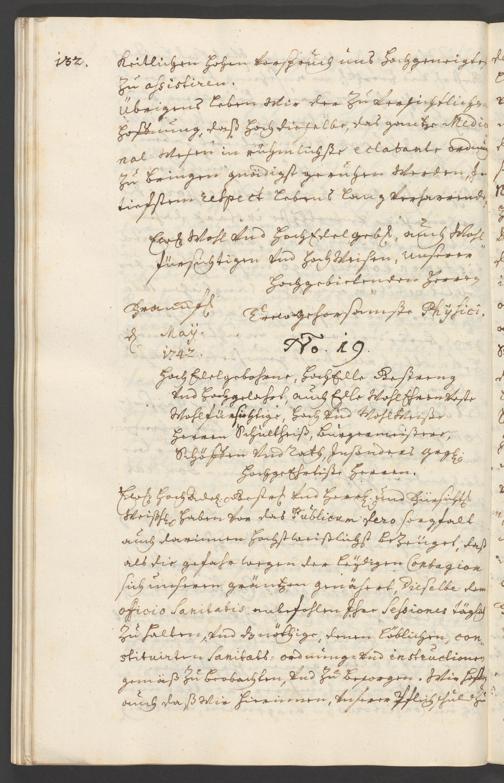 132.
keitlichen hohen Vorspruch uns hochgeneigtest
zu assistiren.
Übrigens leben wir der zuversichtlichen
Hoffnung, daß hochdieselbe, das gantze Medici
nal wesen in rühmlichste eclatante ordnung
zu bringen gnädigst geruhen werden, in
tiefstem respect lebens lang verharrende
Wohl und HochEdelgeb. auch Wohl
fürsichtigen und hochweisen, unserer
hochgebietenden Herren
gehorsamste Physici.
May.
1742.
No. 19.
HochEdelgebohrne, hochEdle Gestreng
und hochgelehrt, auch Edle
Wohlfürsichtige, hoch und Wohlweise
Herren Schultheiß, Bürgermeistere,
Schöffen und Rath, Insonders
hochgeehrteste Herren.
und
haben vor das Publicum dero sorgfalt
auch darinnen höchstweißlichst bezeuget, daß
als die gefahr wegen der leydigen Contagion
sich unseren gräntzen genähert, dieselbe dem
officio Sanitatis anbefohlen Ihre Sessiones täglich
zu halten, und nöthige, denen löblichen con
stituirten Sanitäts-ordnung und instructionen
gemäß zu beobachten, und zu besorgen. Wir
auch daß wir hierinnen, unserer Pflicht